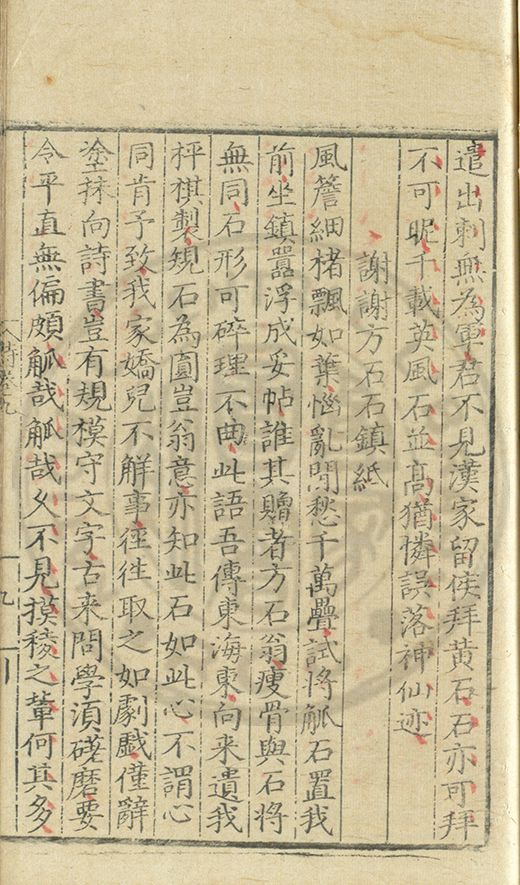 遣出刺無為軍君不見漢家留侯拜黄石石亦可拜
不可昵千載英風石並高猶憐誤落神仙迹
謝謝方石石鎮紙
風簷細楮飄如葉惱亂閒愁千萬疊試将觚石置我
前坐鎮囂浮成妥帖誰其贈者方石翁瘦骨與石将
無同石形可碎理不曲此語吾傳東海東向来遺我
枰棋製規石為圓豈翁意亦知此石如此心不謂心
同肯予致我家嬌兒不解事徑往取之如劇戲僮辭
塗抹向詩書豈有規模守文字古来問學須磋磨要
令平直無偏頗觚哉觚哉乆不見摸稜之輩何其多
九